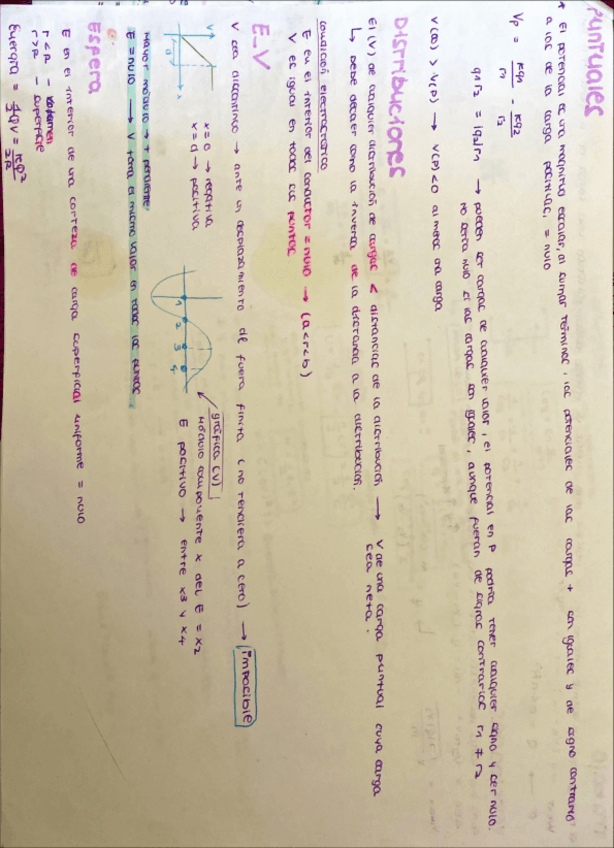 PUNTUALES
* El potencial es una magnitud escalar, al sumar términos, los potenciales de las cargas + son iguales y de signo contrario
a los de la carga positivas, = nulo
Vp = kq1/r1 - kq2/r2
q1r2 = |q2|r1 → pueden ser cargas de cualquier valor, el potencial en P podría tener cualquier signo y ser nulo.
no será nulo si las cargas son iguales, aunque fueran de signos contrarios r1 ≠ r2
V(∞) > V(P) → V(P)<0 al menos una carga
DISTRIBUCIONES
El (V) de cualquier distribución de cargas < distancias de la distribución → V de una carga puntual cuya carga
sea neta.
↳ Debe decaer como la inversa de la distancia a la distribución.
Condición electrostática
E en el interior del conductor = nulo → (a<r<b)
V es igual en todos sus puntos
E_V
V sea discontinuo → ante un desplazamiento de fuera finita (no tendiera a cero) → imposible
V
d
x
x=0 → negativa
x=d → positiva
1
2
3
4
gráfica (V)
módulo componente x del E = x2
E positivo → entre x3 y x4
mayor módulo → + pendiente
E = nulo → V toma el mismo valor en todos los puntos
ESFERA
E en el interior de una corteza de carga superficial uniforme = nulo
r<R - volumen
r>R - superficie
Energía = 1/2 QV = kQ²/2R